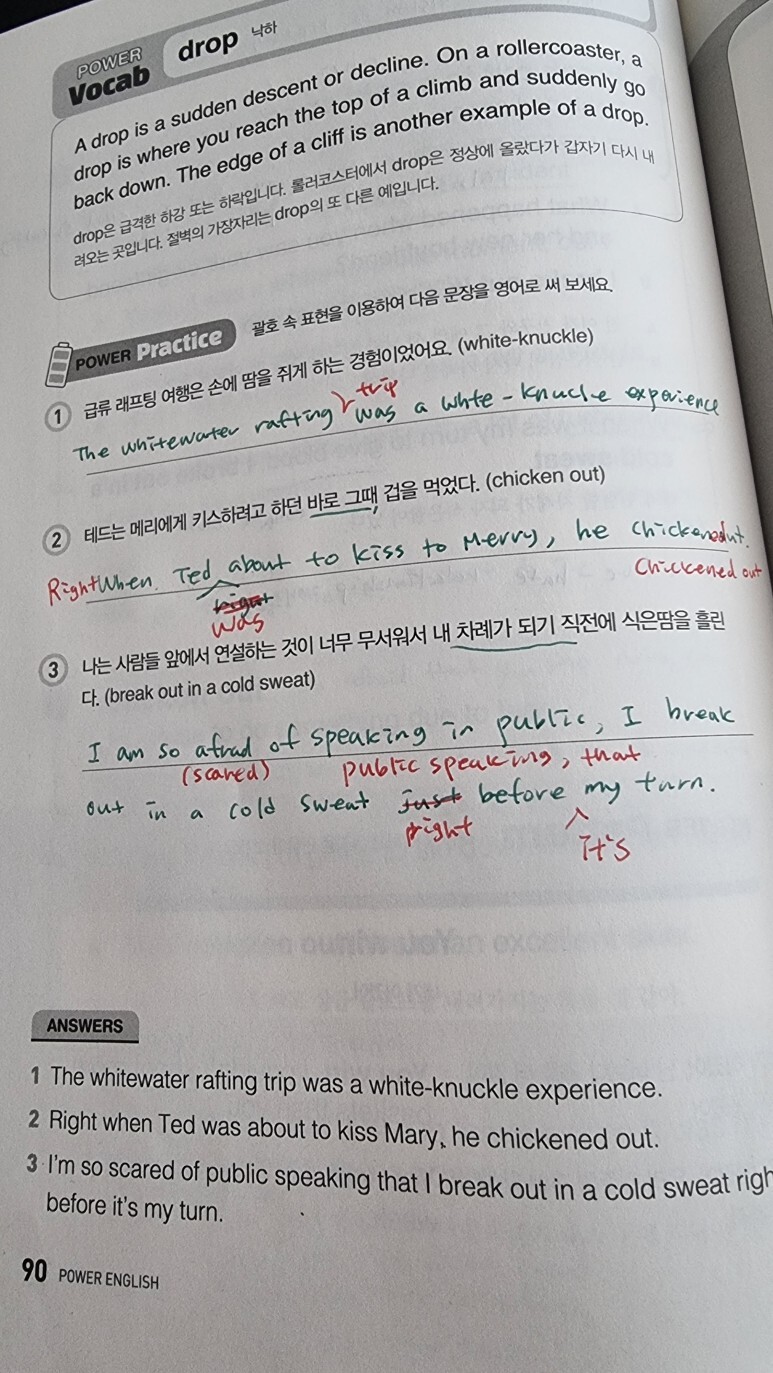 POWER Vocab drop 낙하
A drop is a sudden descent or decline. On a rollercoaster, a
drop is where you reach the top of a climb and suddenly go
back down. The edge of a cliff is another example of a drop.
drop은 급격한 하강 또는 하락입니다. 롤러코스터에서 drop은 정상에 올랐다가 갑자기 다시 내
려오는 곳입니다. 절벽의 가장자리는 drop의 또 다른 예입니다.
POWER Practice 괄호 속 표현을 이용하여 다음 문장을 영어로 써 보세요.
1 급류 래프팅 여행은 손에 땀을 쥐게 하는 경험이었어요. (white-knuckle)
trip
The whitewater rafting was a white-knuckle experience
2 테드는 메리에게 키스하려고 하던 바로 그때, 겁을 먹었다. (chicken out)
Right When Ted about to kiss to Merry, he chickenedout.
right Chickened out
was
3 나는 사람들 앞에서 연설하는 것이 너무 무서워서 내 차례가 되기 직전에 식은땀을 흘린
다. (break out in a cold sweat)
I am so afraid of speaking in public, I break
(scared) public speaking, that
out in a cold sweat just before my turn.
right it's
ANSWERS
1 The whitewater rafting trip was a white-knuckle experience.
2 Right when Ted was about to kiss Mary, he chickened out.
3 I'm so scared of public speaking that I break out in a cold sweat righ
before it's my turn.
90 POWER ENGLISH